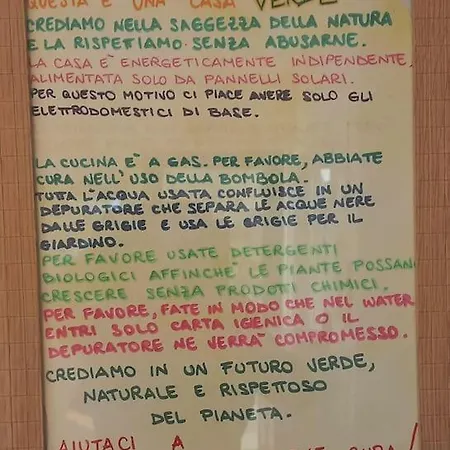 QUESTA È UNA CASA VERDE
CREDIAMO NELLA SAGGEZZA DELLA NATURA
E LA RISPETIAMO SENZA ABUSARNE.
LA CASA E' ENERGETICAMENTE INDIPENDENTE,
ALIMENTATA SOLO DA PANNELLI SOLARI.
PER QUESTO MOTIVO CI PIACE AVERE SOLO GLI
ELETTRODOMESTICI DI BASE.
LA CUCINA E' A GAS. PER FAVORE, ABBIATE
CURA NELL'USO DELLA BOMBOLA.
TUTTA L'ACQUA USATA CONFLUISCE IN UN
DEPURATORE CHE SEPARA LE ACQUE NERE
DALLE GRIGIE E USA LE GRIGIE PER IL
GIARDINO.
PER FAVORE USATE DETERGENTI
BIOLOGICI AFFINCHE' LE PIANTE POSSAN
CRESCERE SENZA PRODOTTI CHIMICI.
PER FAVORE, FATE IN MODO CHE NEL WATER
ENTRI SOLO CARTA IGIENICA O IL
DEPURATORE NE VERRA' COMPROMESSO.
CREDIAMO IN UN FUTURO VERDE,
NATURALE E RISPETTOSO
DEL PIANETA.
AIUTACI A